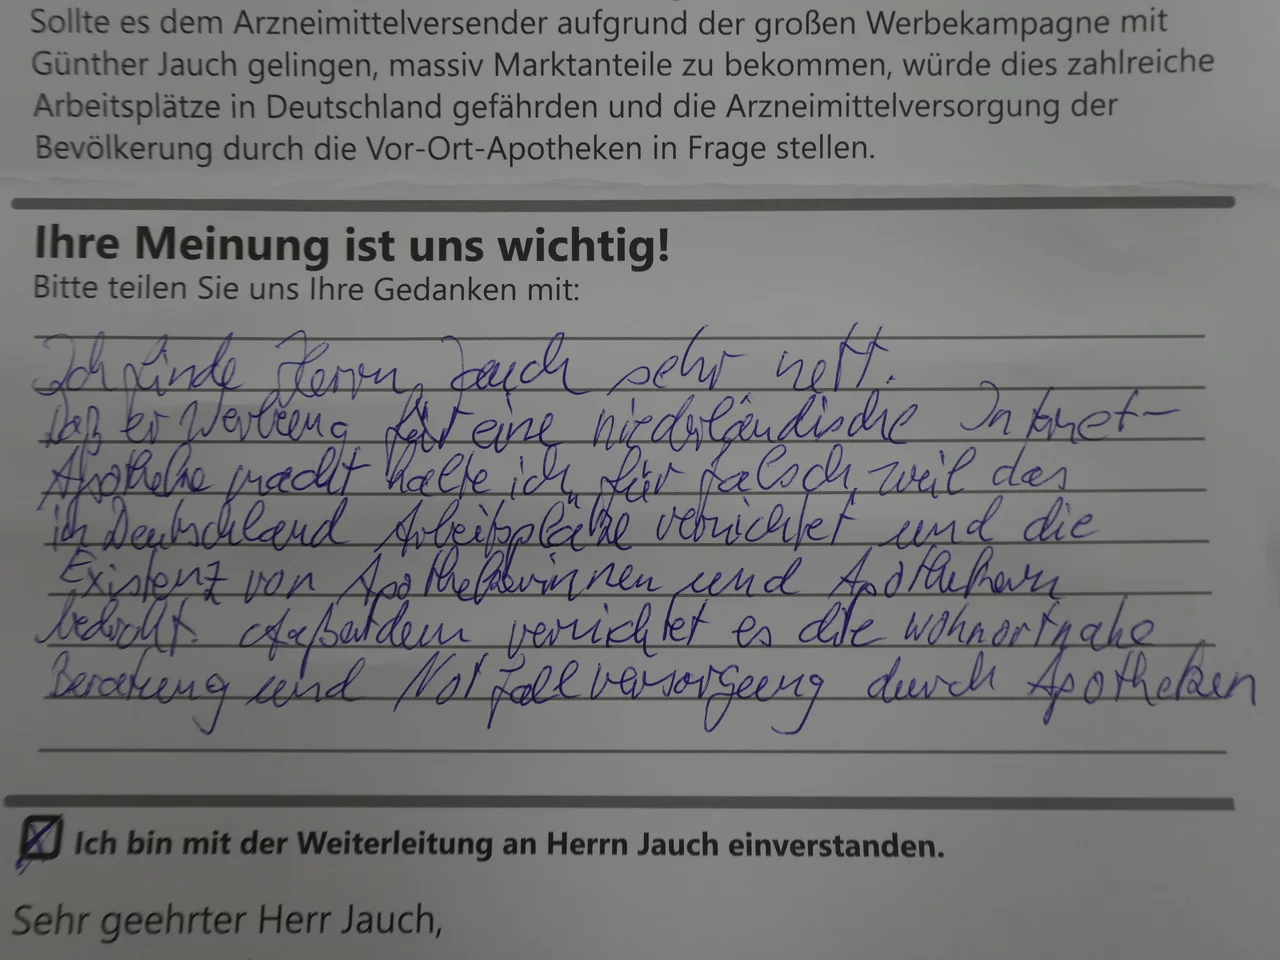 Sollte es dem Arzneimittelversender aufgrund der großen Werbekampagne mit
Günther Jauch gelingen, massiv Marktanteile zu bekommen, würde dies zahlreiche
Arbeitsplätze in Deutschland gefährden und die Arzneimittelversorgung der
Bevölkerung durch die Vor-Ort-Apotheken in Frage stellen.
Ihre Meinung ist uns wichtig!
Bitte teilen Sie uns Ihre Gedanken mit:
Ich finde Herrn Jauch sehr nett.
Daß er Werbung für eine niederländische Internet-
Apotheke macht halte ich für falsch, weil das
in Deutschland Arbeitsplätze vernichtet und die
Existenz von Apothekerinnen und Apothekern
bedroht. Außerdem vernichtet es die wohnortnahe
Beratung und Notfallversorgung durch Apotheken
Ich bin mit der Weiterleitung an Herrn Jauch einverstanden.
Sehr geehrter Herr Jauch,